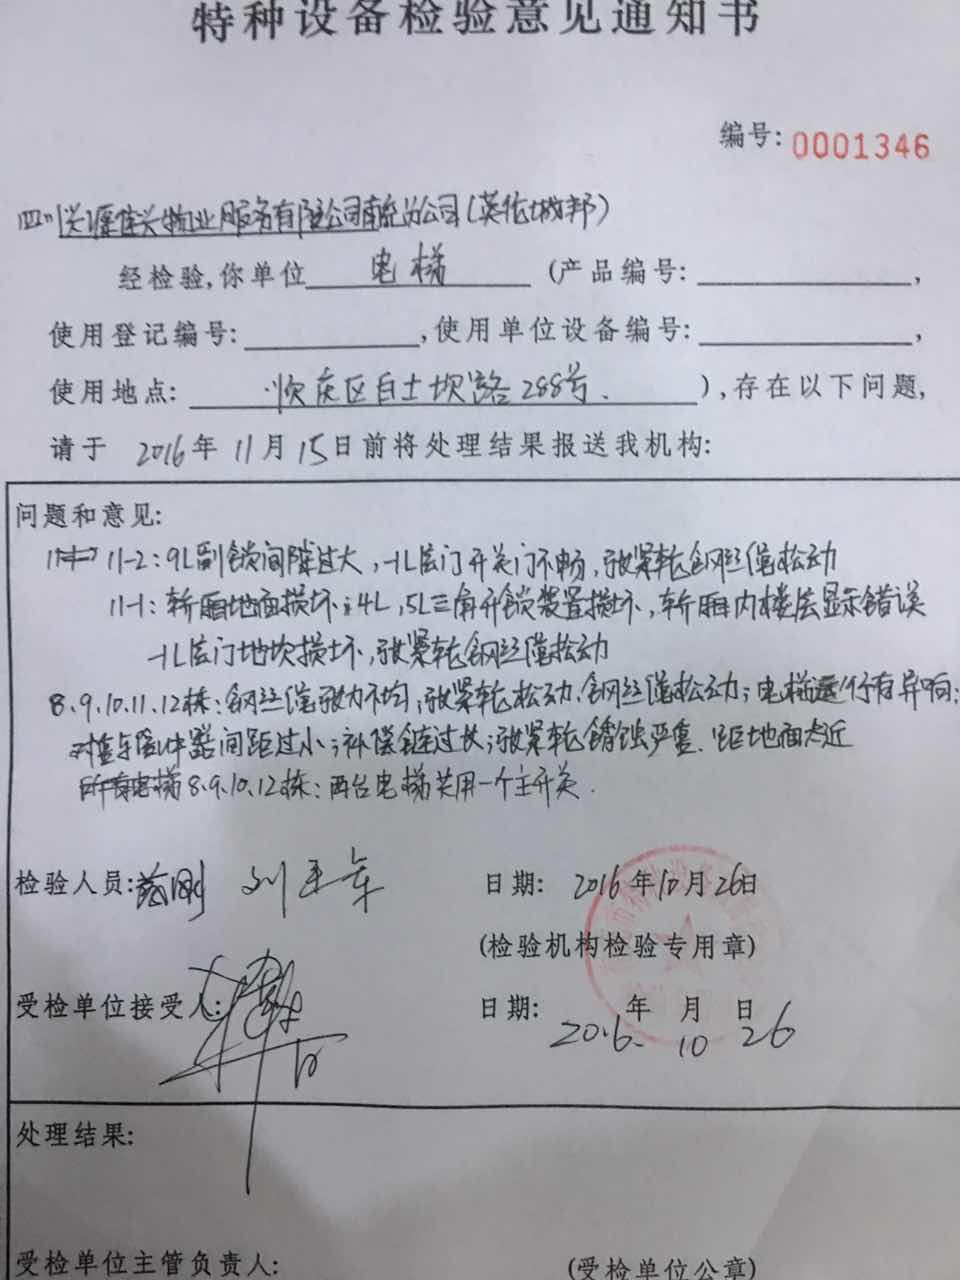 特种设备检验意见通知书
编号: 0001346
四川兴源佳兴物业服务有限公司南充分公司(英伦城邦)
经检验,你单位 电梯 (产品编号: ,
使用登记编号: ,使用单位设备编号: ,
使用地点: 顺庆区白土坝路288号. ),存在以下问题,
请于 2016年11月15日前将处理结果报送我机构:
问题和意见:
11-2:9L副锁间隙过大,-1L层门开关门不畅,张紧轮钢丝绳松动
11-1:轿厢地面损坏;4L,5L三角开锁装置损坏,轿厢内楼层显示错误
-1L层门地坎损坏,张紧轮钢丝绳松动
8.9.10.11.12栋:钢丝绳张力不均,张紧轮松动.钢丝绳松动;电梯运行有异响;
对重与缓冲器间距过小;补偿链过长;张紧轮锈蚀严重.距地面太近
8.9.10.12栋:两台电梯共用一个主开关.
检验人员: 刚 刘 日期: 2016年10月26日
(检验机构检验专用章)
受检单位接受人: 日期: 年 月 日
2016. 10 26
处理结果:
受检单位主管负责人: (受检单位公章)